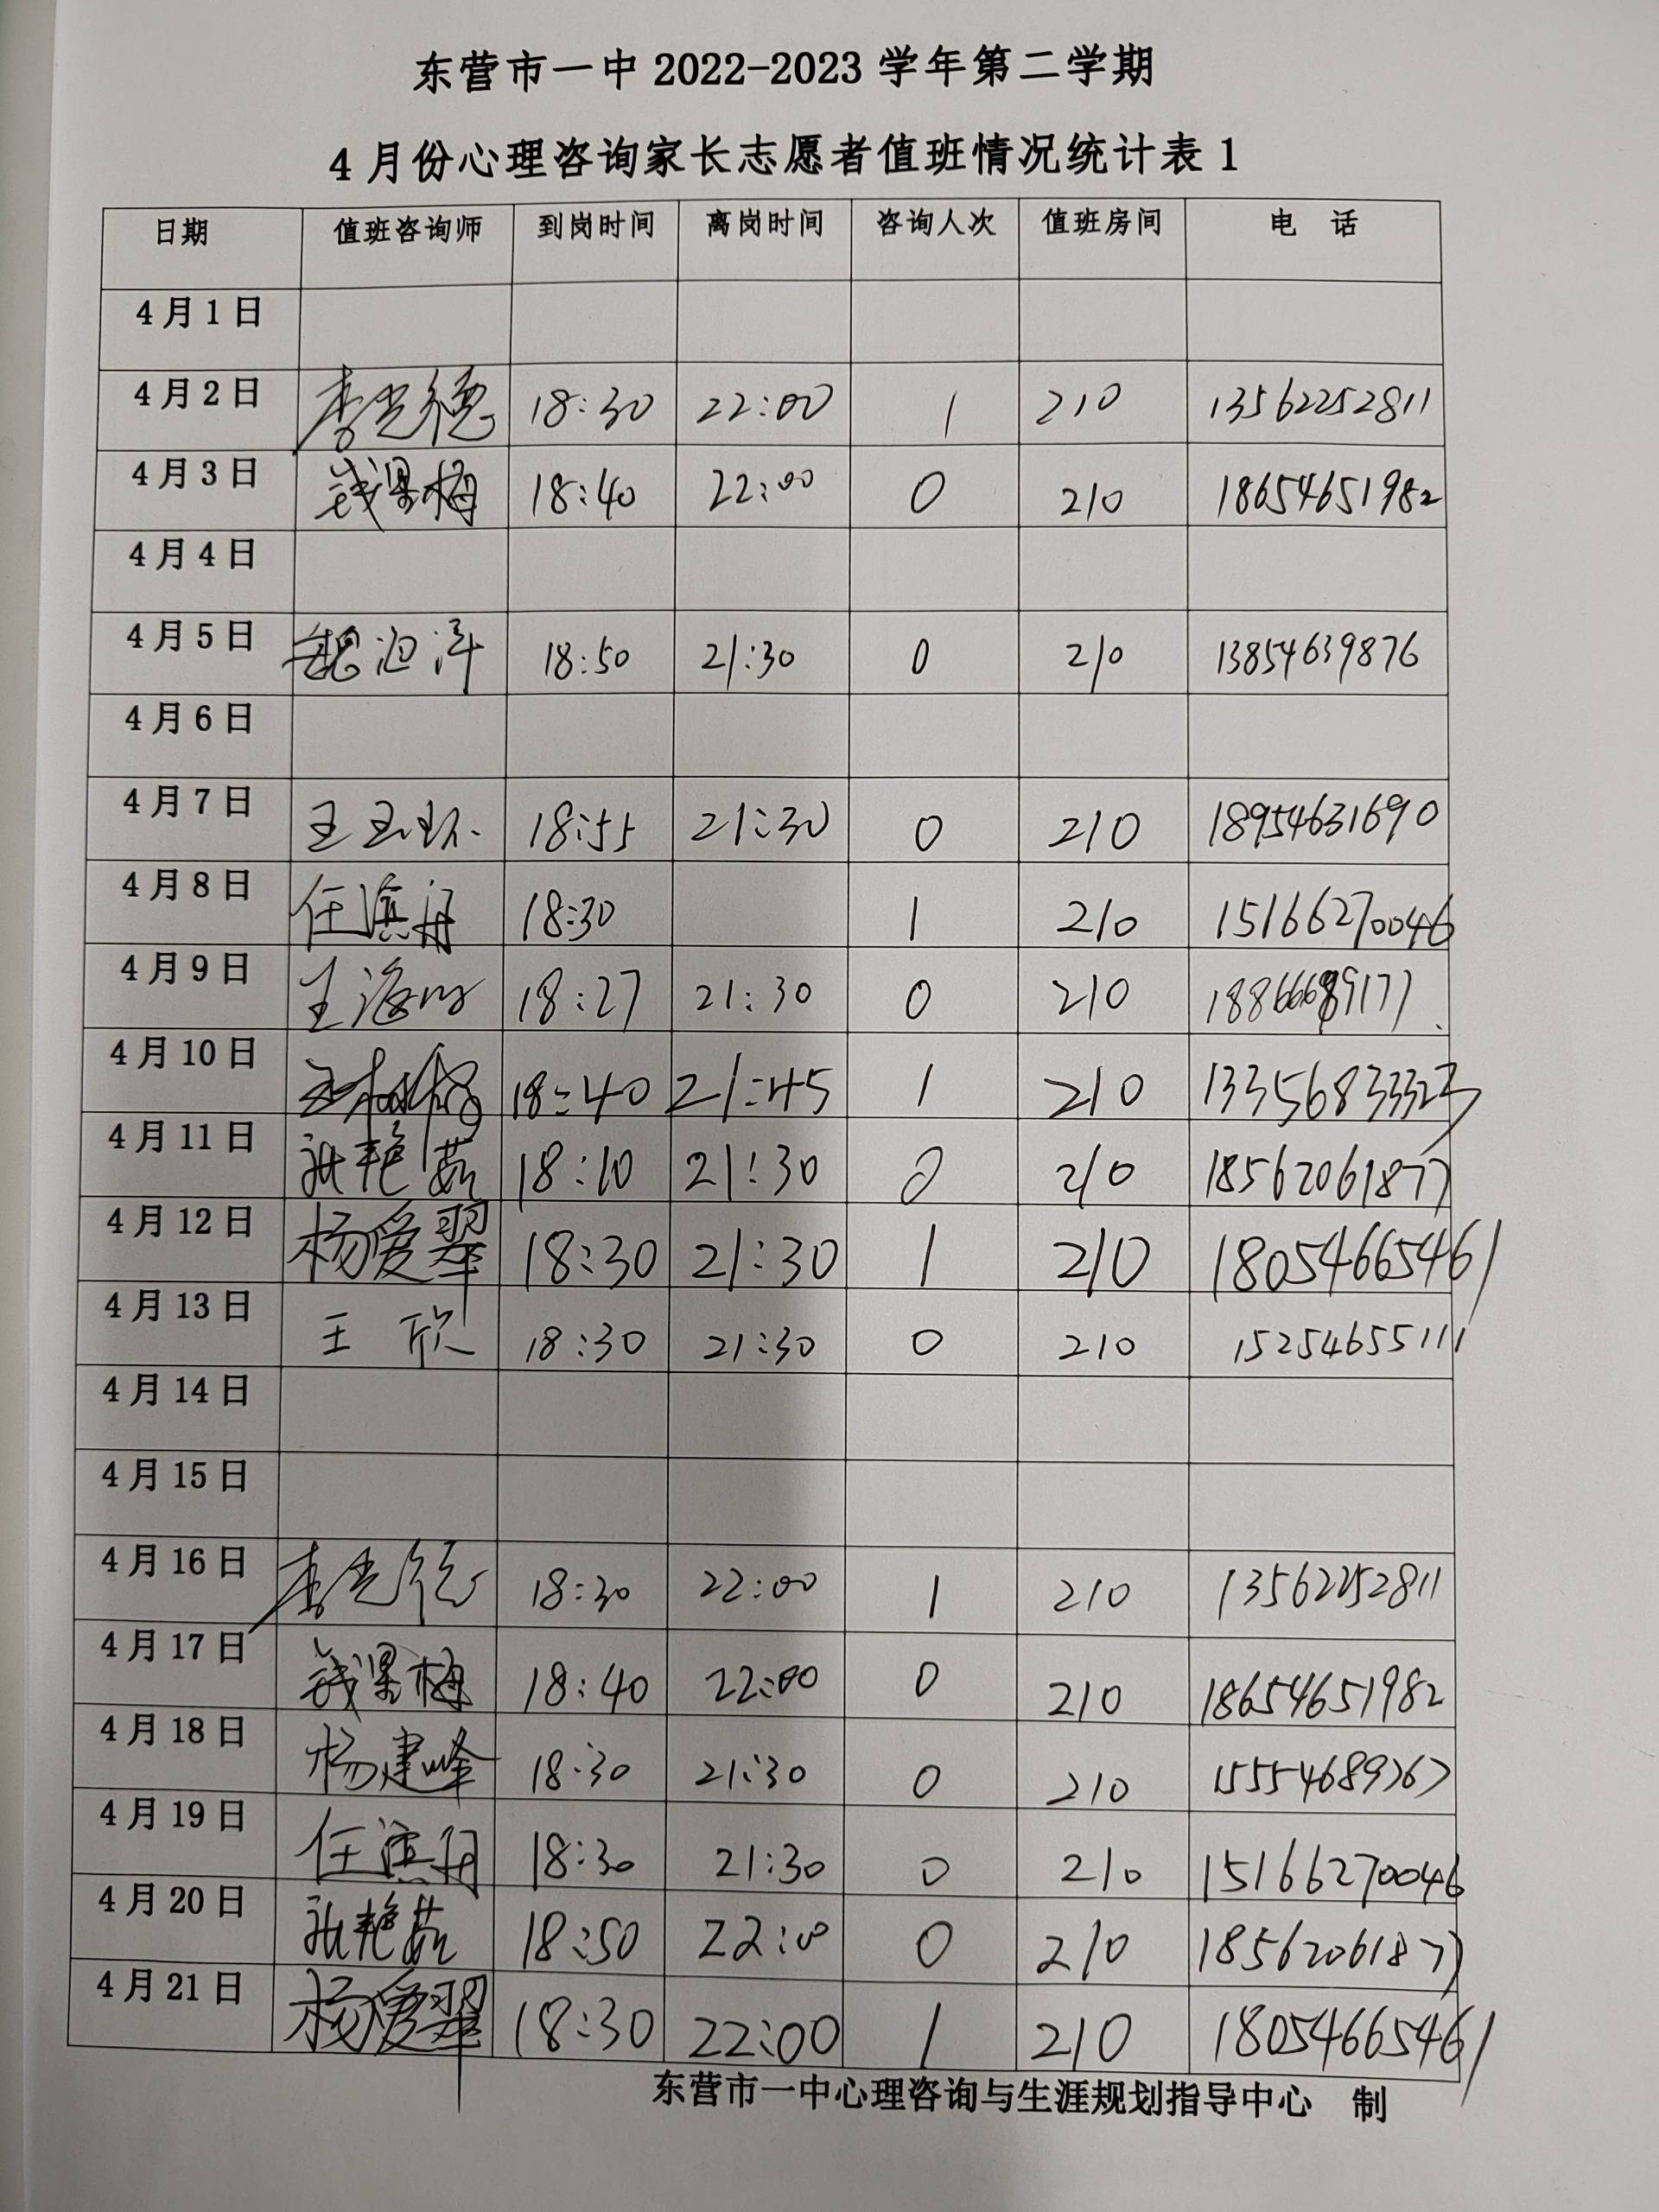 东营市一中 2022-2023 学年第二学期
4 月份心理咨询家长志愿者值班情况统计表 1
日期 值班咨询师 到岗时间 离岗时间 咨询人次 值班房间 电 话
4 月 1 日
4 月 2 日 李光德 18:30 22:00 1 210 13562252811
4 月 3 日 钱梁梅 18:40 22:00 0 210 18654651982
4 月 4 日
4 月 5 日 18:50 21:30 0 210 13854639876
4 月 6 日
4 月 7 日 王玉环 18:55 21:30 0 210 18954631690
4 月 8 日 任滨舟 18:30 1 210 15166270046
4 月 9 日 王海 18:27 21:30 0 210
4 月 10 日 18:40 21:45 1 210 13356833323
4 月 11 日 张艳茹 18:10 21:30 0 210 18562061877
4 月 12 日 杨爱翠 18:30 21:30 1 210 18054665461
4 月 13 日 王 欣 18:30 21:30 0 210 15254655111
4 月 14 日
4 月 15 日
4 月 16 日 李光德 18:30 22:00 1 210 13562252811
4 月 17 日 钱梁梅 18:40 22:00 0 210 18654651982
4 月 18 日 杨建峰 18:30 21:30 0 210 15554689767
4 月 19 日 任滨舟 18:30 21:30 0 210 15166270046
4 月 20 日 张艳茹 18:50 22:00 0 210 18562061877
4 月 21 日 杨爱翠 18:30 22:00 1 210 18054665461
东营市一中心理咨询与生涯规划指导中心 制